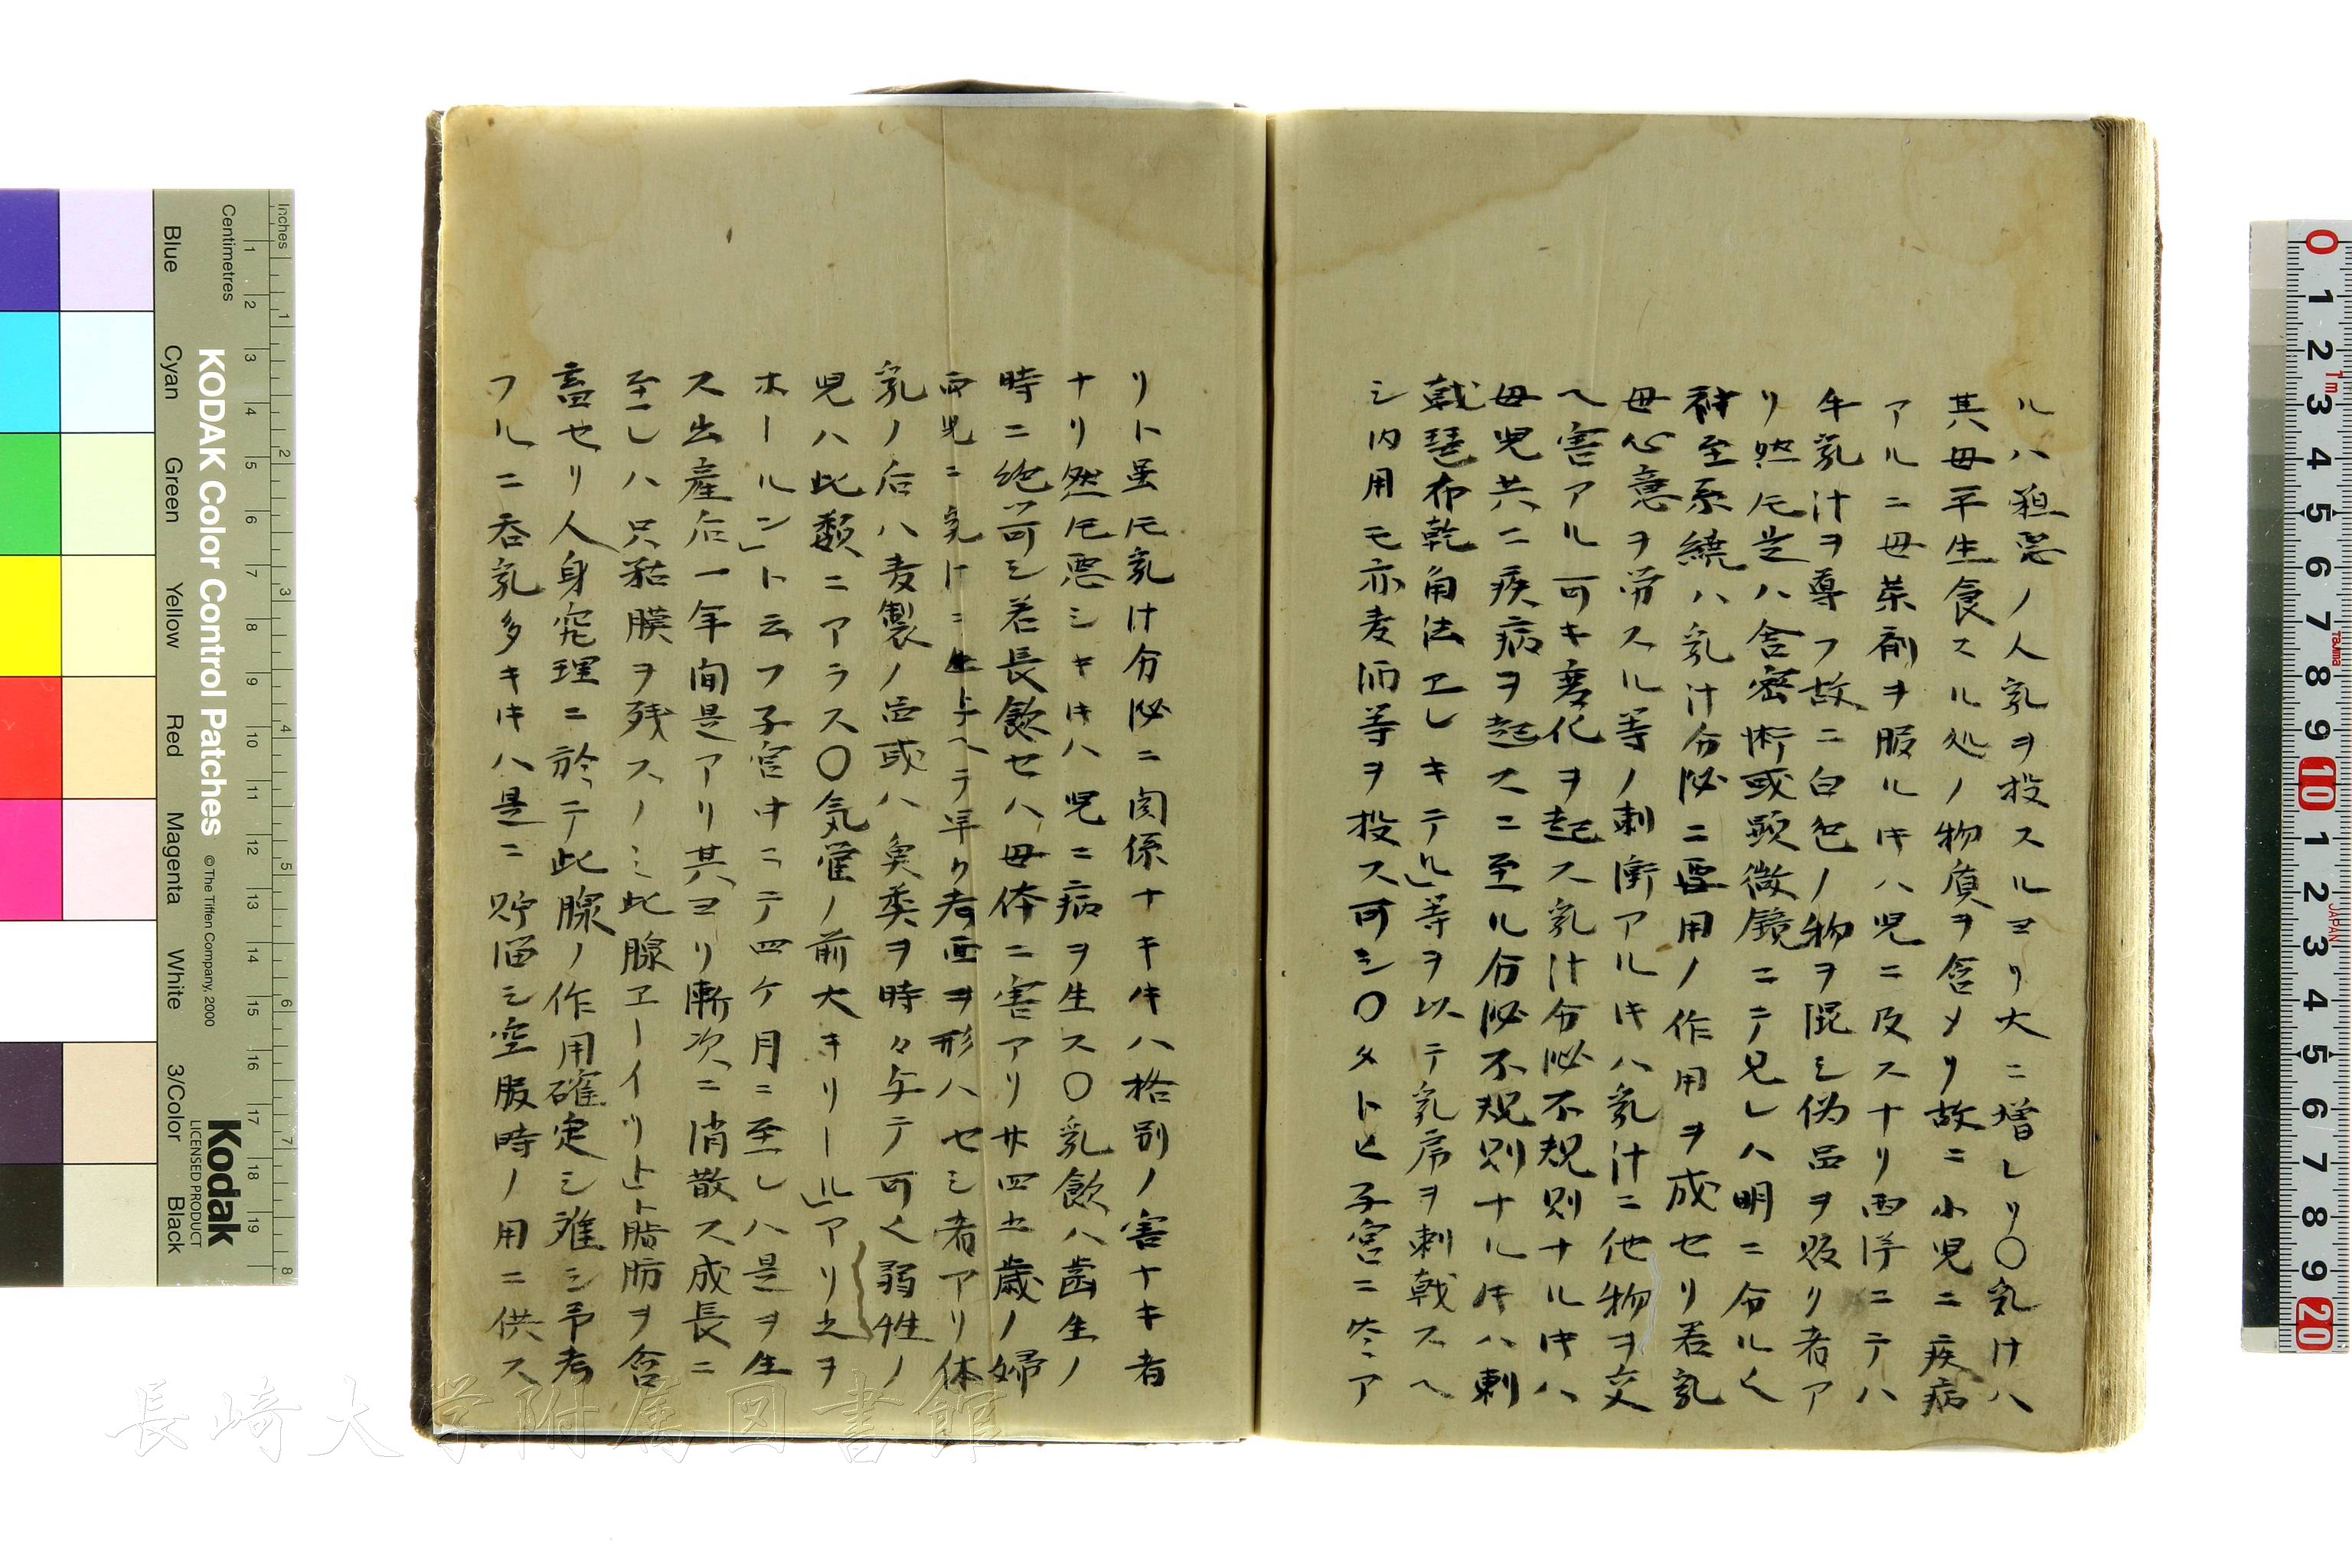 ルハ粗悪ノ人乳ヲ投スルヨリ大ニ増レリ〇乳汁ハ
其母平生食スル処ノ物質ヲ含メリ故ニ小児ニ疾病
アルニ母薬剤ヲ服ルキハ児ニ及スナリ西洋ニテハ
牛乳汁ヲ尊フ故ニ白色ノ物ヲ混シ偽品ヲ販リ者ア
リ然𪜈是ハ舎密術或顕微鏡ニテ見レハ明ニ分ルヽ
神至系繞ハ乳汁分泌ニ要用ノ作用ヲ成セリ若乳
母心意ヲ労スル等ノ刺衝アルキハ乳汁ニ他物ヲ交
ヘ害アル可キ変化ヲ起ス乳汁分泌不規則ナルキハ
母児共ニ疾病ヲ起スニ至ル分泌不規則ナルキハ刺
戟琶布乾角法ヱレキテル」等ヲ以テ乳房ヲ刺戟スヘ
シ内用モ亦麦酒等ヲ投ス可シ〇タトヒ子宮ニ ア
リト虽𪜈乳汁分泌ニ関係ナキキハ格別ノ害ナキ者
ナリ然𪜈悪シキキハ児ニ病ヲ生ス〇乳飲ハ歯生ノ
時ニ絶可シ若長飲セハ母体ニ害アリ廿四五歳ノ婦
両児ニ乳汁ニ 与ヘテ早ク老面ヲ形ハセシ者アリ体
乳ノ后ハ麦製ノ 或ハ魚類ヲ時々与テ可く弱性ノ
児ハ此類ニアラス〇気管ノ前大キリール」アリ之ヲ
ホールン」ト云フ子宮中ニテ四ケ月ニ至レハ是ヲ生
ス出産后一年間是アリ其ヨリ漸次ニ消散ス成長ニ
至レハ只粘膜ヲ残スノミ此腺ヱーイツト」ト脂肪ヲ含
畜セリ人身究理ニ於テ此腺ノ作用確定シ難シ予考
フルニ呑乳多キキハ是ニ貯溜シ空服時ノ用ニ供ス
KODAK Color Control Patches
© The Tiffen Company, 2000
Kodak
LICENSED PRODUCT
Inches
Centimetres
Blue Cyan Green Yellow Red Magenta White 3/Color Black
長崎大学附属図書館